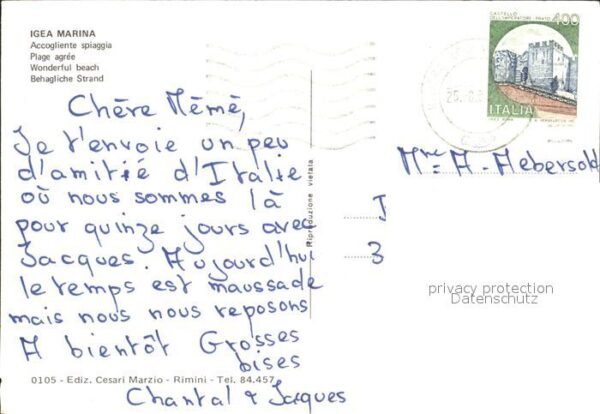 IGEA MARINA
Accogliente spiaggia
Plage agrée
Wonderful beach
Behagliche Strand
Chère Mémé,
Je t'envoie un peu
d'amitié d'Italie
où nous sommes là
pour quinze jours avec
Jacques. Aujourd'hui
le temps est maussade
mais nous nous reposons
A bientôt Grosses
bises
Chantal & Jacques
0105 - Ediz. Cesari Marzio - Rimini - Tel. 84.457
Riproduzione vietata
CASTELLO
DELL'IMPERATORE · PRATO
400
ITALIA
Mme A. Aebersold
I
3
privacy protection
Datenschutz